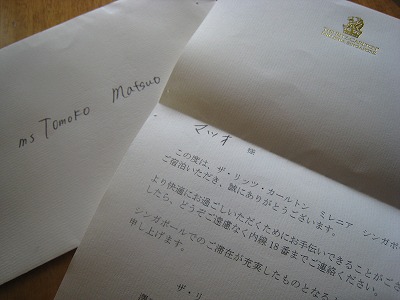 ms Tomoko Matsuo
マツオ 様
この度は、ザ・リッツ・カールトン ミレニア シンガポー
ご宿泊いただき、誠にありがとうございます。
より快適にお過ごしいただくためにお手伝いできることがござ
したら、どうぞご遠慮なく内線18番までご連絡ください。
シンガポールでのご滞在が充実したものとなる
申し上げます。
ザ・リ